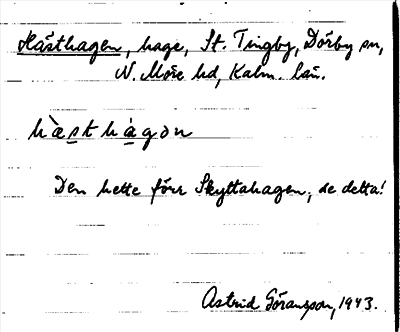 Hästhagen, hage, St. Tingby, Dörby sn,
N. Möre hd, Kalm. län.
hæ̀sthàgən
Den hette förr Skyttahagen, se detta!
Astrid Göransson, 1943.